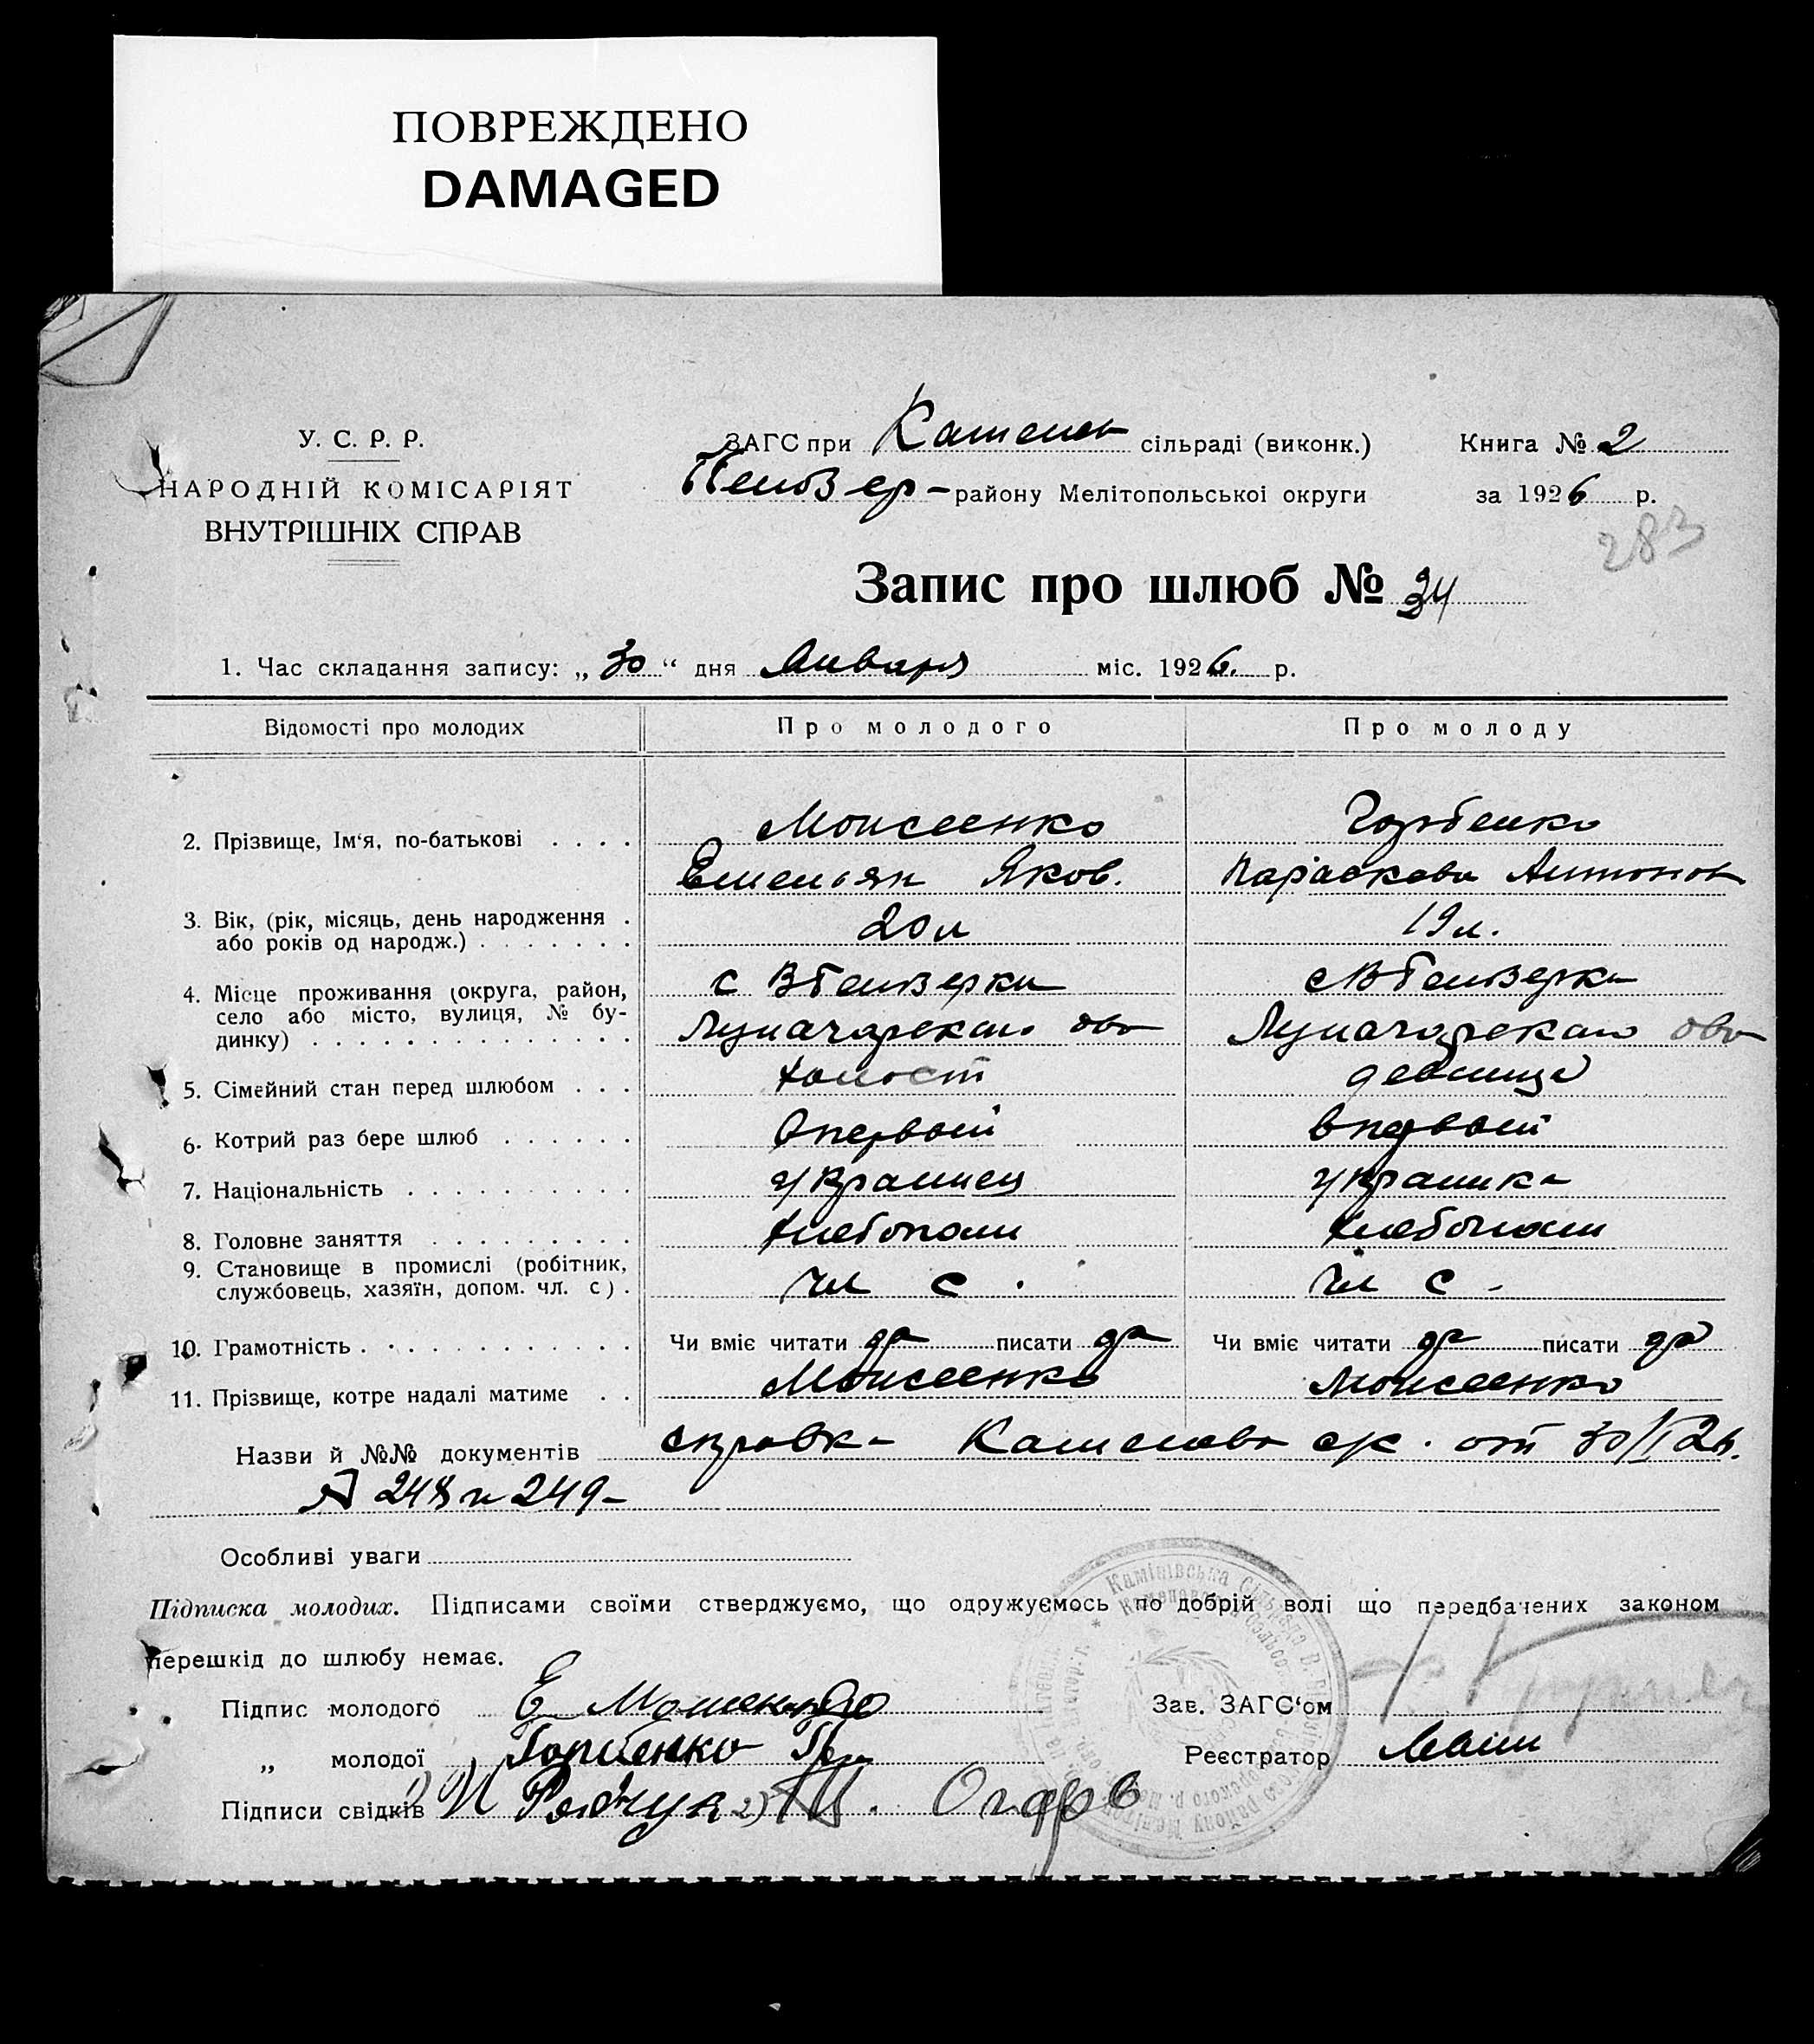 ПОВРЕЖДЕНО
DAMAGED
У. С. Р. Р.
НАРОДНІЙ КОМІСАРІЯТ
ВНУТРІШНІХ СПРАВ
ЗАГС при Каменов сільраді (виконк.) Книга № 2
району Мелітопольської округи за 1926 р.
283
Запис про шлюб № 34
1. Час складання запису: „ 30 “ дня Января міс. 1926. р.
Відомості про молодих Про молодого Про молоду
2. Прізвище, Ім‘я, по-батькові Моисеенко Горбенко
Емельян Яков. Параскева Антонов
3. Вік, (рік, місяць, день народження
або років од народж.) 20 л 19 л.
4. Місце проживання (округа, район,
село або місто, вулиця, № бу-
динку)
с В Белозерки с В Белозерки
Луначарскаго Луначарскаго
5. Сімейний стан перед шлюбом холост девица
6. Котрий раз бере шлюб впервый впервый
7. Національність украинец украинка
8. Головне заняття хлебопаш хлебопаш
9. Становище в промислі (робітник,
службовець, хазяїн, допом. чл. с) чл с. чл с.
10. Грамотність Чи вміє читати да писати да Чи вміє читати да писати да
11. Прізвище, котре надалі матиме Моисеенко Моисеенко
Назви й №№ документів справка Каменов с/с. от 30/I 26.
№ 248 и 249
Особливі уваги
Підписка молодих. Підписами своїми стверджуємо, що одружуємось по добрій волі що передбачених законом
перешкід до шлюбу немає.
Підпис молодого Е Моисеенко Зав. ЗАГС‘ом
„ молодої Горбенко Реєстратор
Підписи свідків 1) 2)
Камінівська Сільрада